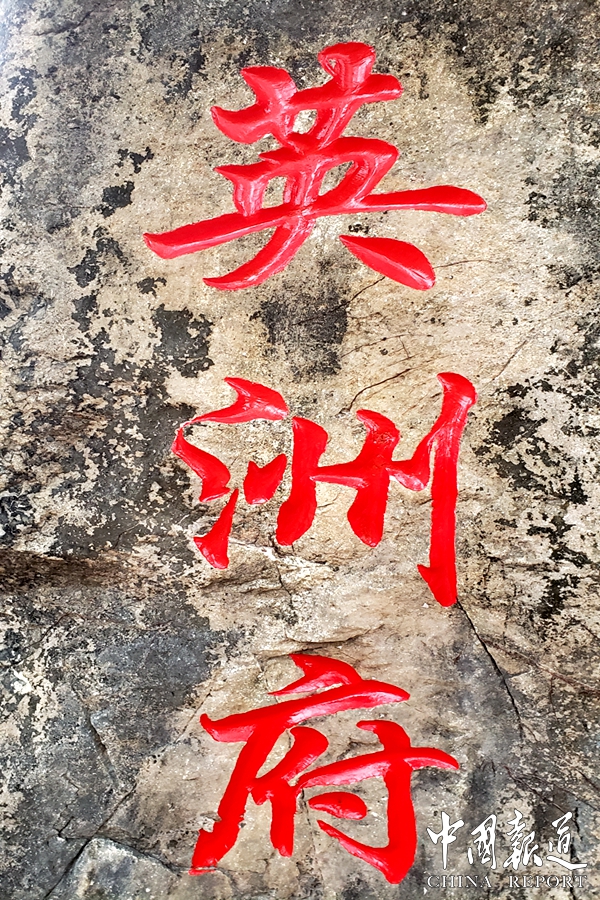 英洲府
中国报道
CHINA REPORT